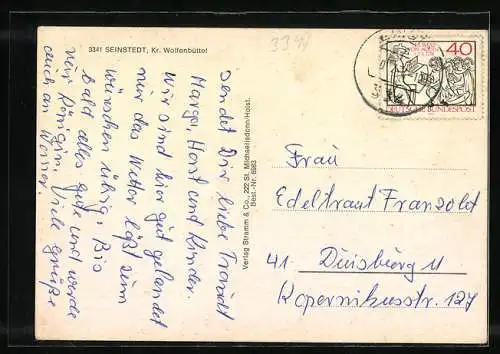 3341 SEINSTEDT, Kr. Wolfenbüttel
3341
40
DEUTSCHE BUNDESPOST
Sendet Dir liebe
Margo, Horst und Kinder.
Wir sind hier gut gelandet
nur das Wetter läßt zum
wünschen übrig. Bis
bald alles gute und werde
Viele grüße
auch an Werner.
Verlag Stramm & Co., 222 St. Michaelisdonn/Holst.
Best.-Nr. 8983
Frau
Edeltraut Franzolt
41 Duisburg 11
Kopernikusstr. 127